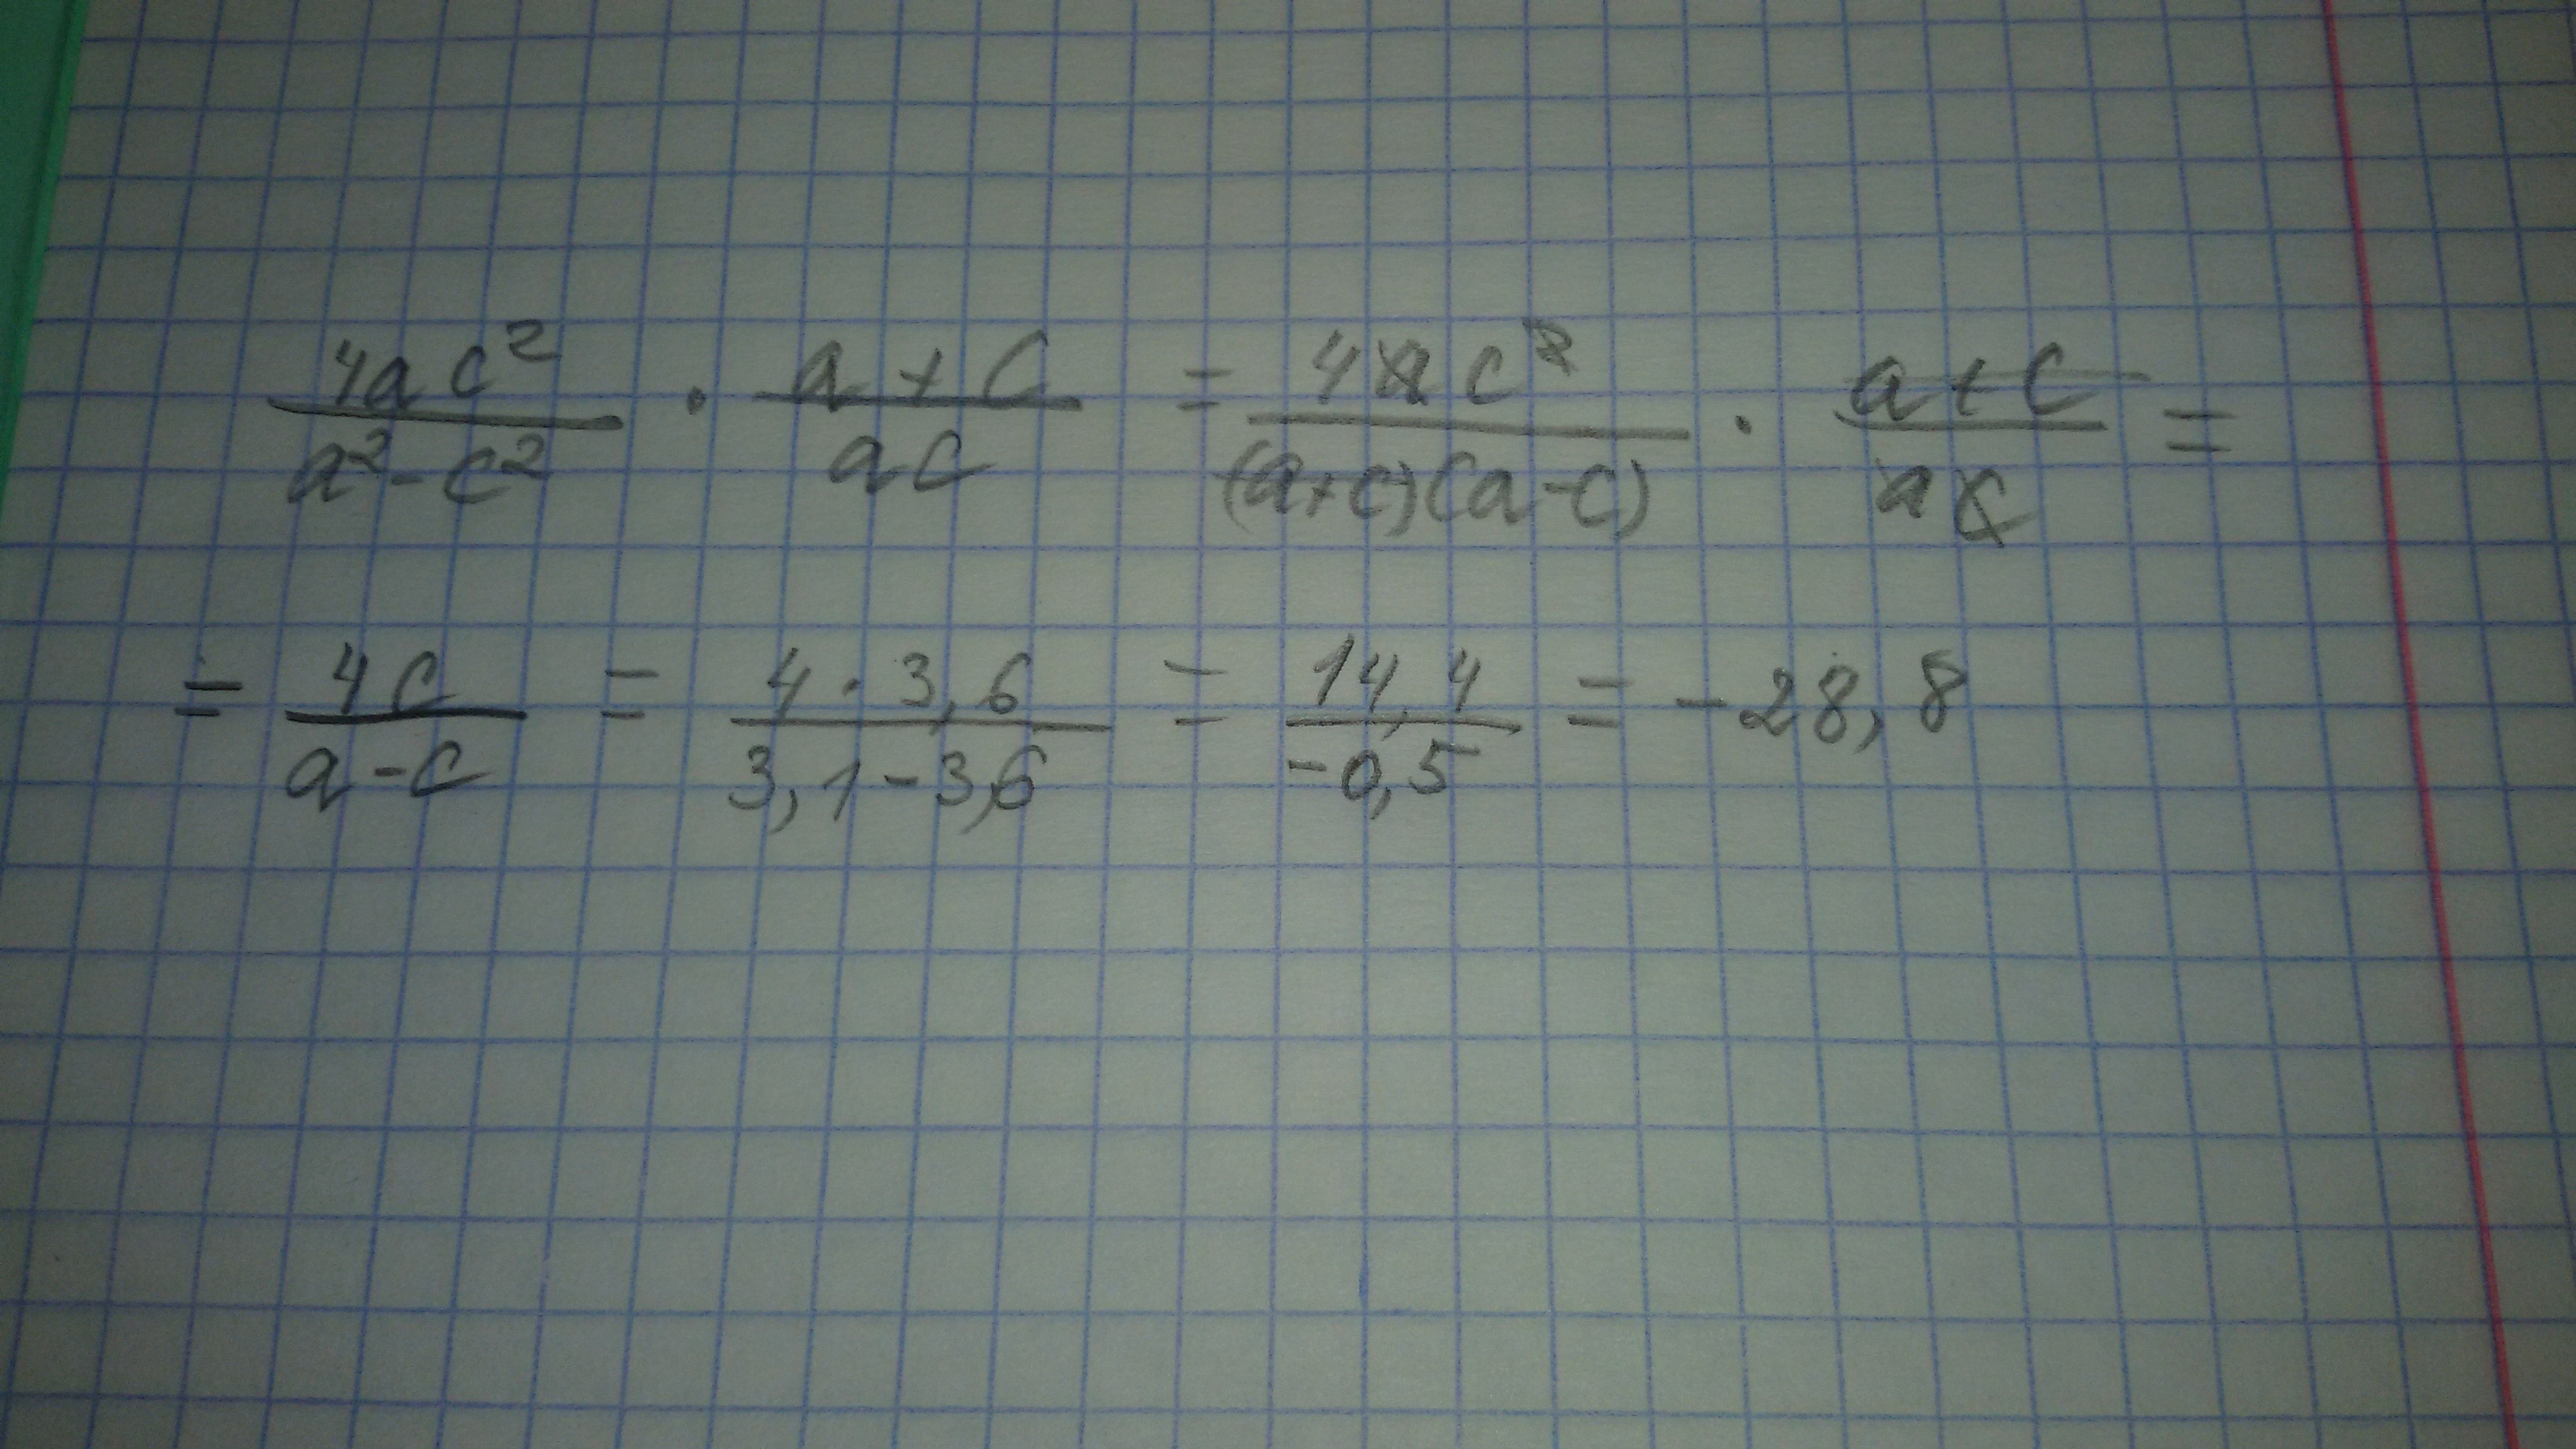 4ac²/(a²-c²) · (a+c)/(ac) = 4ac²/((a+c)(a-c)) · (a+c)/(ac) =
= 4c/(a-c) = (4·3,6)/(3,1-3,6) = 14,4/(-0,5) = -28,8